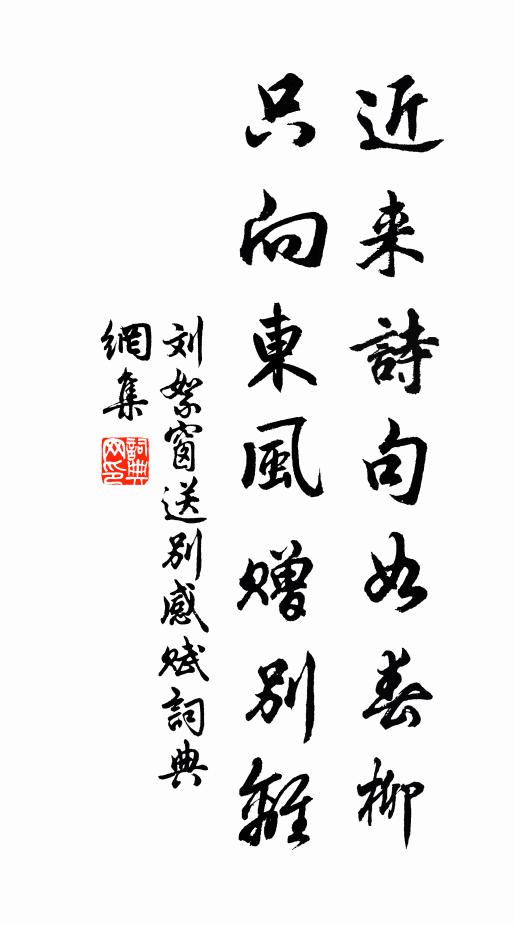 近来詩句如春柳
只向東風贈別離
刘絮窗送別感賦詞典
網集
詞典
网印